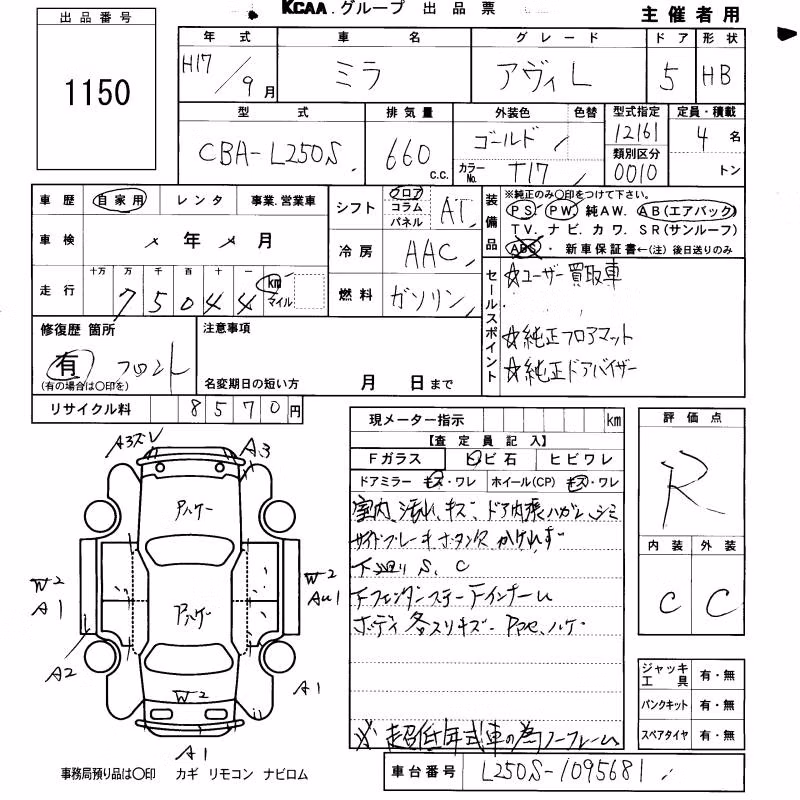 KCAA.グループ 出品票
主催者用
出品番号
1150
年式 車名 グレード ドア 形状
H17/9月 ミラ アヴィL 5 HB
型式 排気量 外装色 色替 型式指定 定員・積載
CBA-L250S 660c.c. ゴールド 12161 4名
カラーNo. T17 類別区分 0010 トン
車歴 自家用 レンタ 事業.営業車
車検 年 月
走行 十万 万 千 百 十 一
75044 km マイル
シフト フロア コラム パネル AT
冷房 AAC
燃料 ガソリン
装備品
※純正のみ○印をつけて下さい。
PS PW 純AW. AB(エアバック)
TV. ナビ. カワ. SR(サンルーフ)
ABS・新車保証書←(注)後日送りのみ
セールスポイント
☆ユーザー買取車
☆純正フロアマット
☆純正ドアバイザー
修復歴 箇所
有 フロント
(有の場合は○印を)
注意事項
名変期日の短い方 月 日まで
リサイクル料 8570円
現メーター指示 km
【査定員記入】
Fガラス トビ石 ヒビワレ
ドアミラー キズ・ワレ ホイール(CP) キズ・ワレ
室内、汚れ、キズ、ドア内張ハガレ、シミ
サイドブレーキボタン
下廻り S、C
ボディ各スリキズ
※超低年式車の為ノークレーム
評価点
R
内装 外装
C C
A3 A3
アハゲー
W2 A1
アハゲー
W2
A2
W2
A1
A1
ジャッキ工具 有・無
パンクキット 有・無
スペアタイヤ 有・無
事務局預り品は○印 カギ リモコン ナビロム
車台番号 L250S-1095681